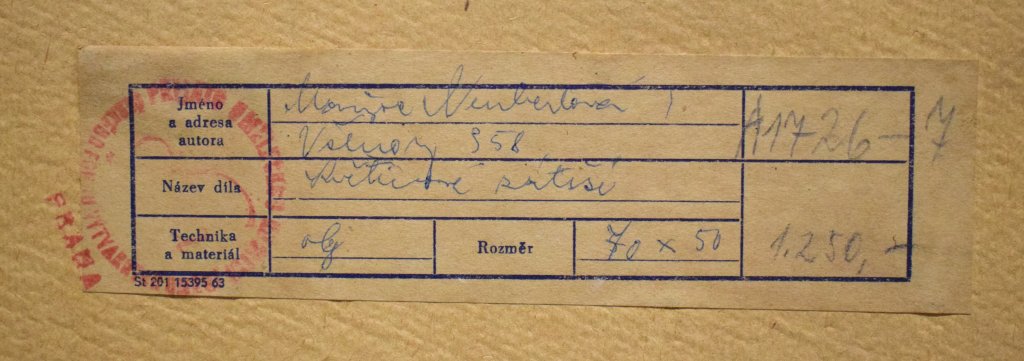 Jméno
a adresa
autora
Neubertová
Všenory 958
Název díla
Květinové zátiší
Technika
a materiál
olej
Rozměr
70 x 50
A1726-7
1.250,-
PRAHA
St 201 15395 63